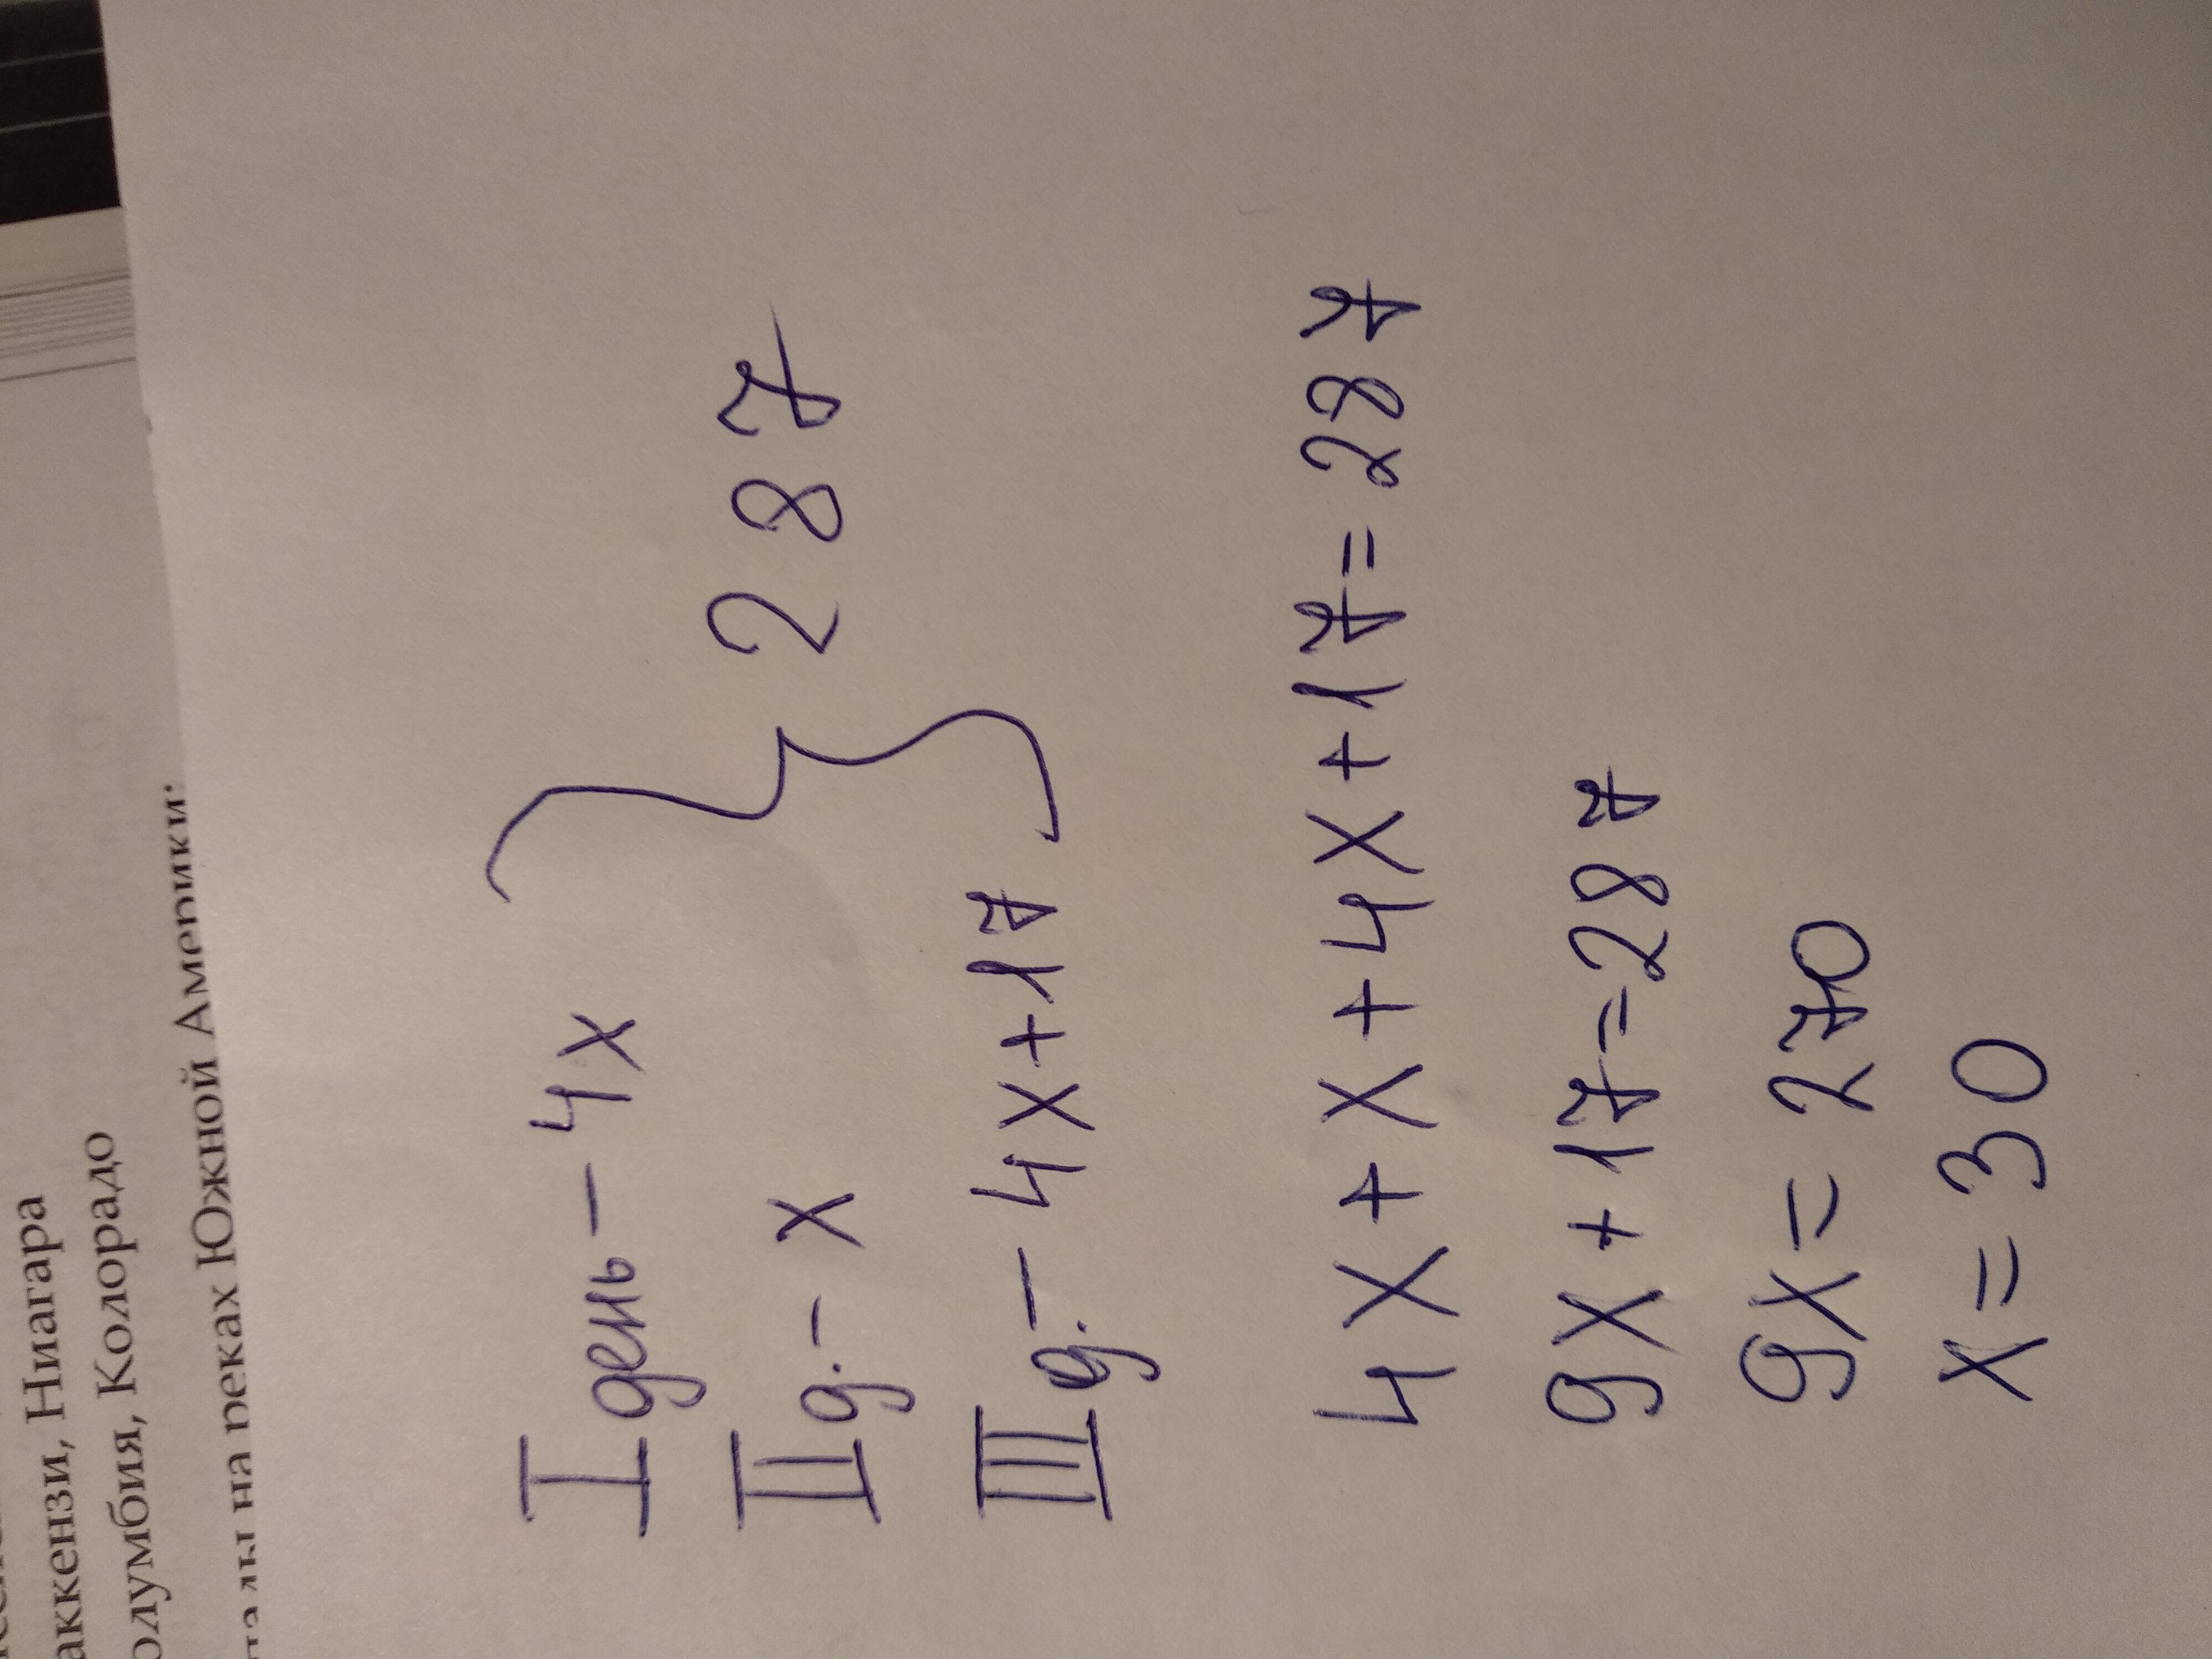 аккензи, Ниагара
олумбия, Колорадо
на реках Южной Америки:
I день - 4x
II д. - x
III д. - 4x+17
287
4x + x + 4x + 17 = 287
9x + 17 = 287
9x = 270
x = 30